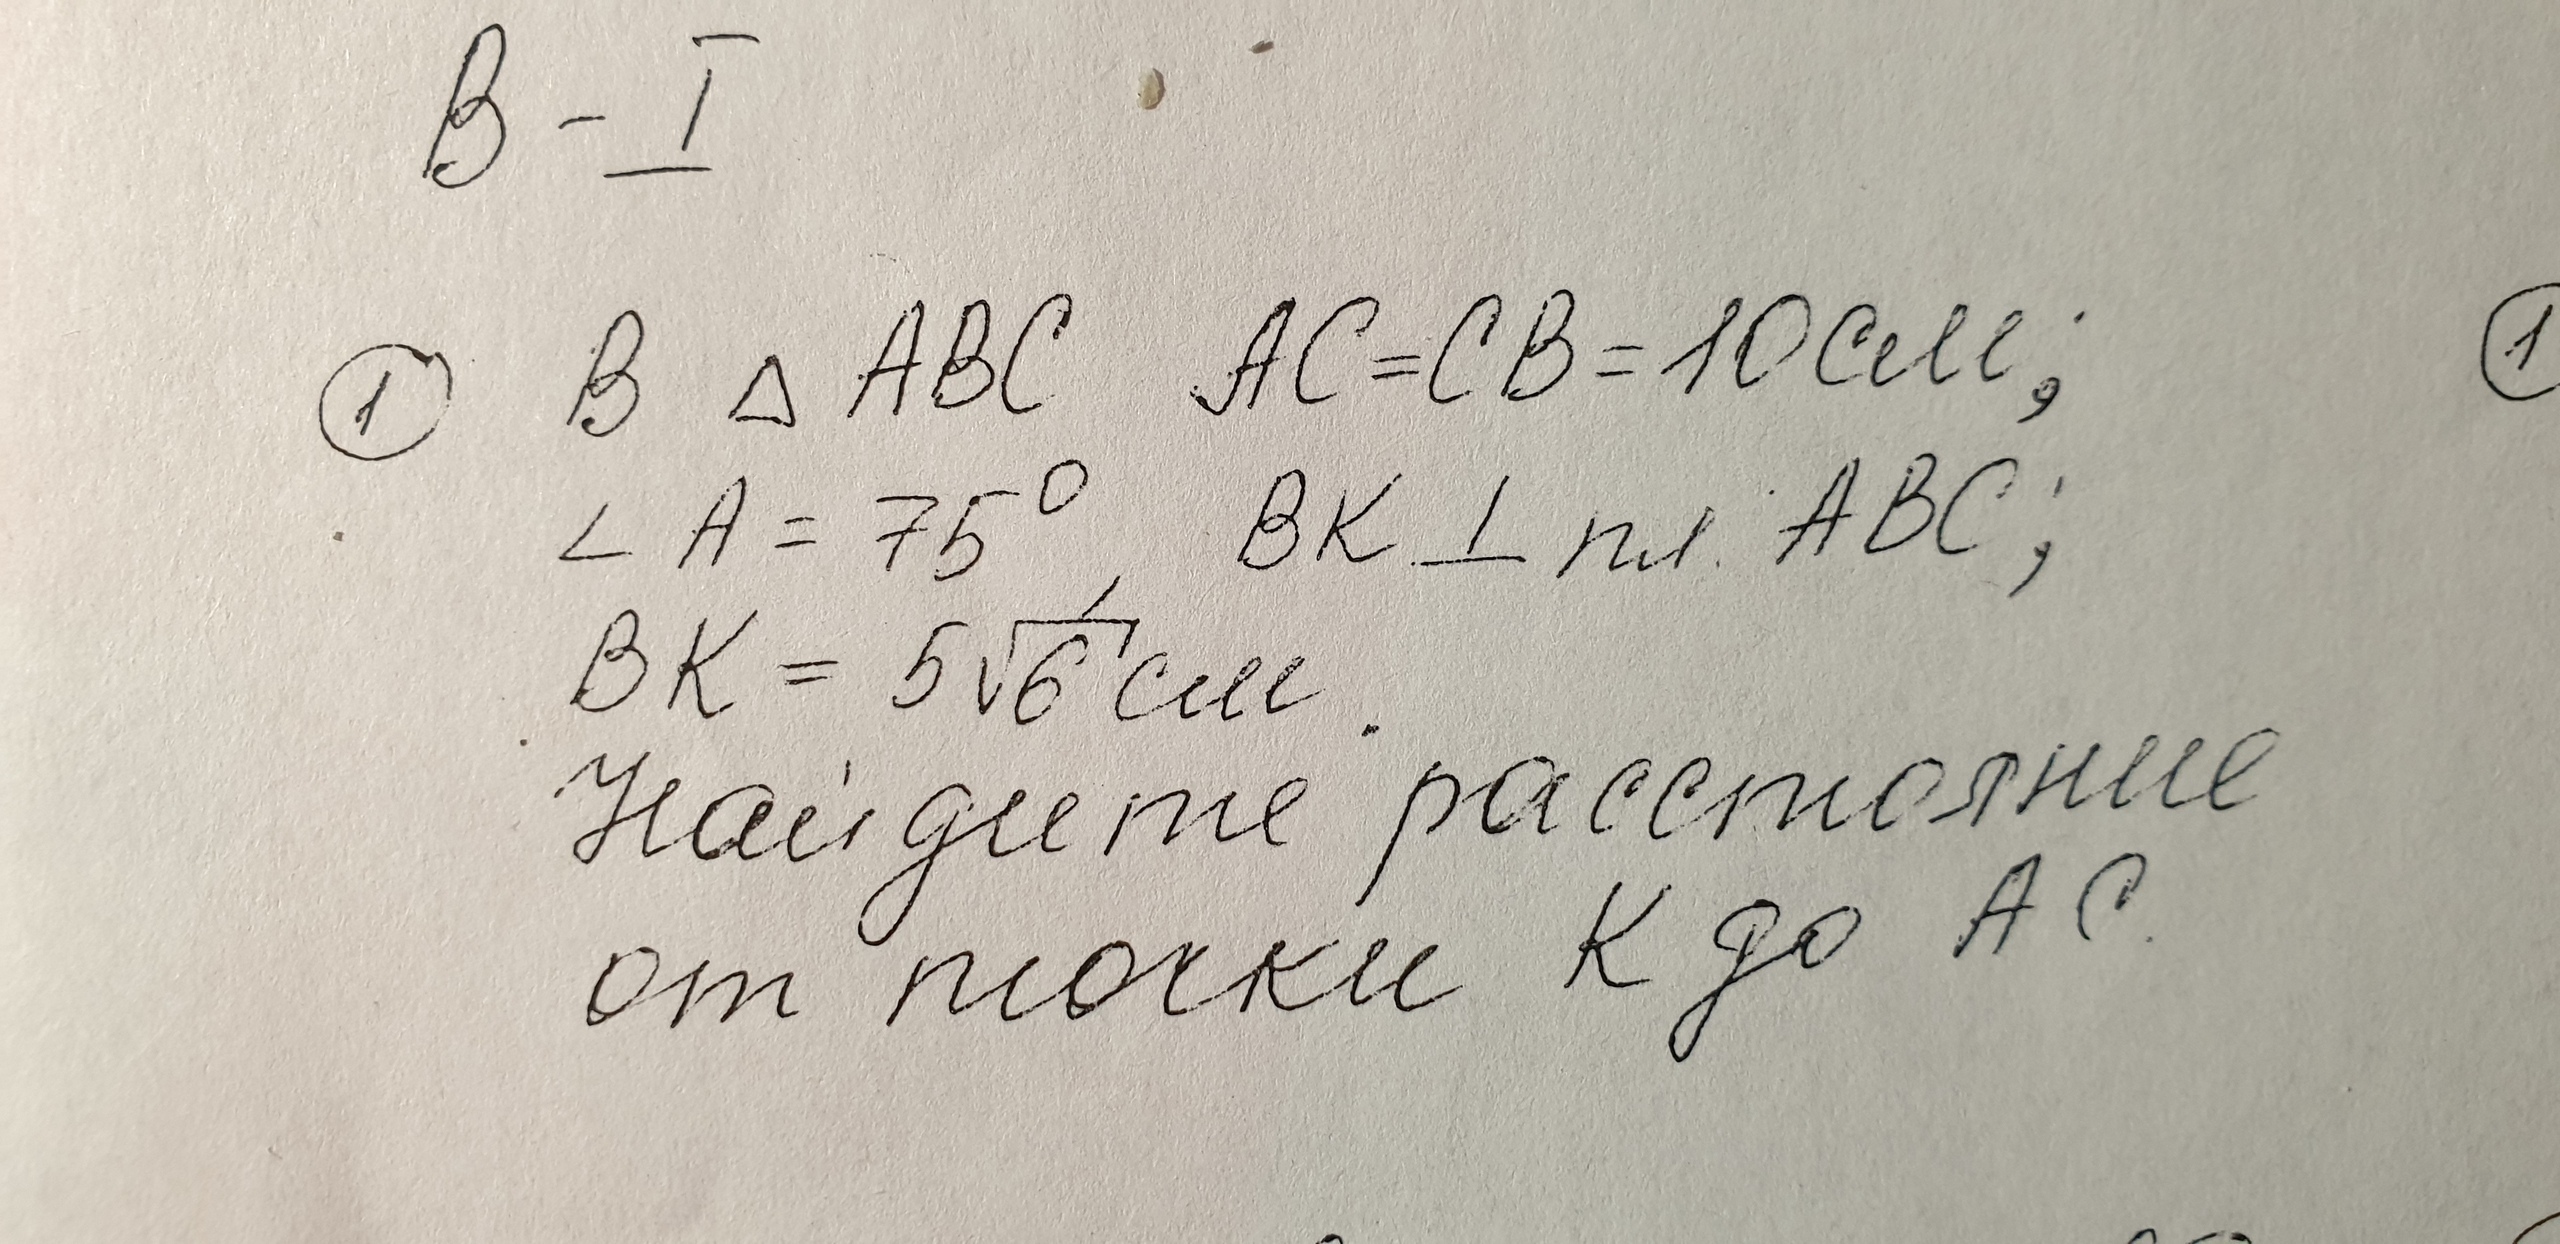 В - I
① В △ ABC AC=CB=10см;
∠ A = 75°, BK ⊥ пл. ABC;
BK = 5√6 см.
Найдите расстояние
от точки K до AC.
①